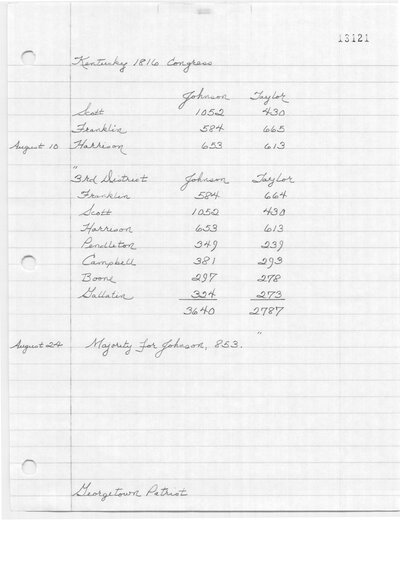 13121
Kentucky 1816 Congress
Johnson Taylor
Scott 1052 430
Franklin 584 665
August 10 Harrison 653 613
"
3rd District Johnson Taylor
Franklin 584 664
Scott 1052 430
Harrison 653 613
Pendleton 349 239
Campbell 381 293
Boone 297 278
Gallatin 324 273
3640 2787
"
August 24 Majority for Johnson, 853.
Georgetown Patriot